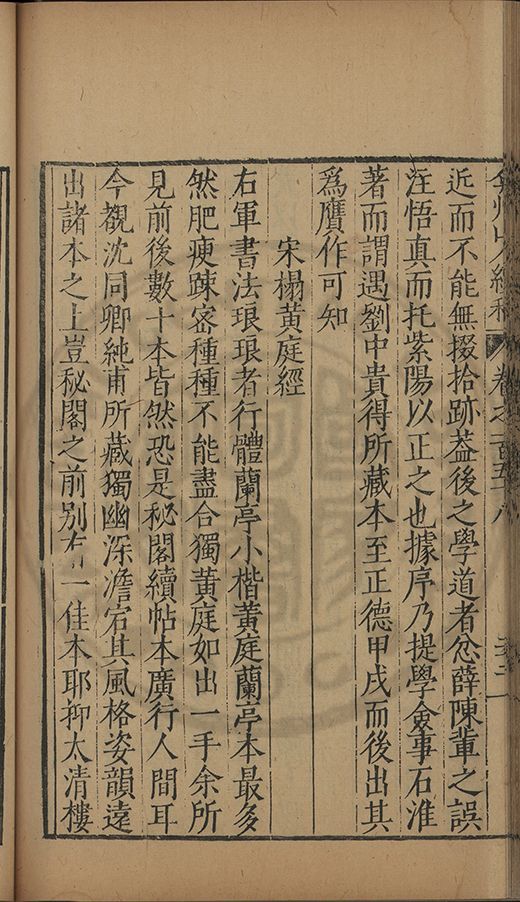 弇州山人續稿 卷之一百五十八
近而不能無掇拾跡葢後之學道者忿薛陳輩之誤
注悟真而托紫陽以正之也據序乃提學僉事石淮
著而謂遇劉中貴得所藏本至正德甲戌而後出其
爲贋作可知
宋榻黄庭經
右軍書法琅琅者行體蘭亭小楷黄庭蘭亭本最多
然肥瘦踈宻種種不能盡合獨黄庭如出一手余所
見前後數十本皆然恐是秘閣續帖本廣行人間耳
今覩沈同卿純甫所藏獨幽深澹宕其風格姿韻遠
出諸本之上豈秘閣之前别有一佳本耶抑太清樓